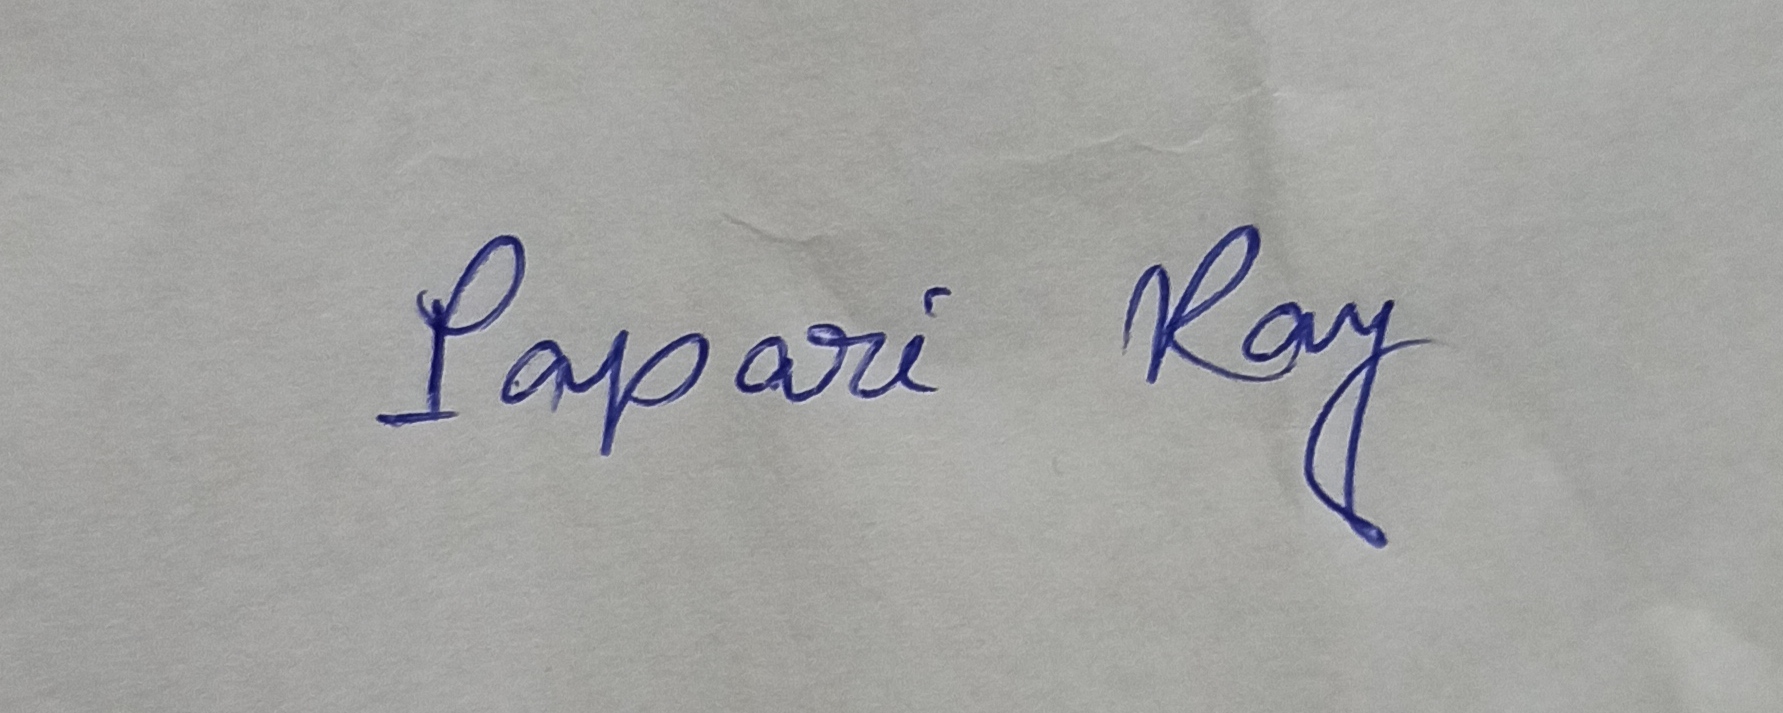 Papari Ray